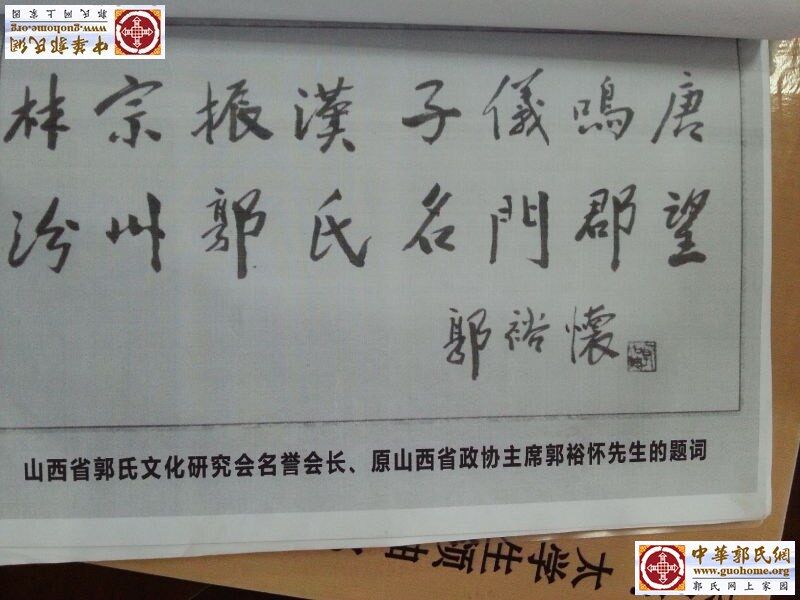 中華郭氏網
www.guohome.org
郭氏网上家园
林宗振漢 子儀鳴唐
汾州郭氏 名門郡望
郭裕懷
山西省郭氏文化研究会名誉会长、原山西省政协主席郭裕怀先生的题词
太学生颂
中華郭氏網
www.guohome.org
郭氏网上家园